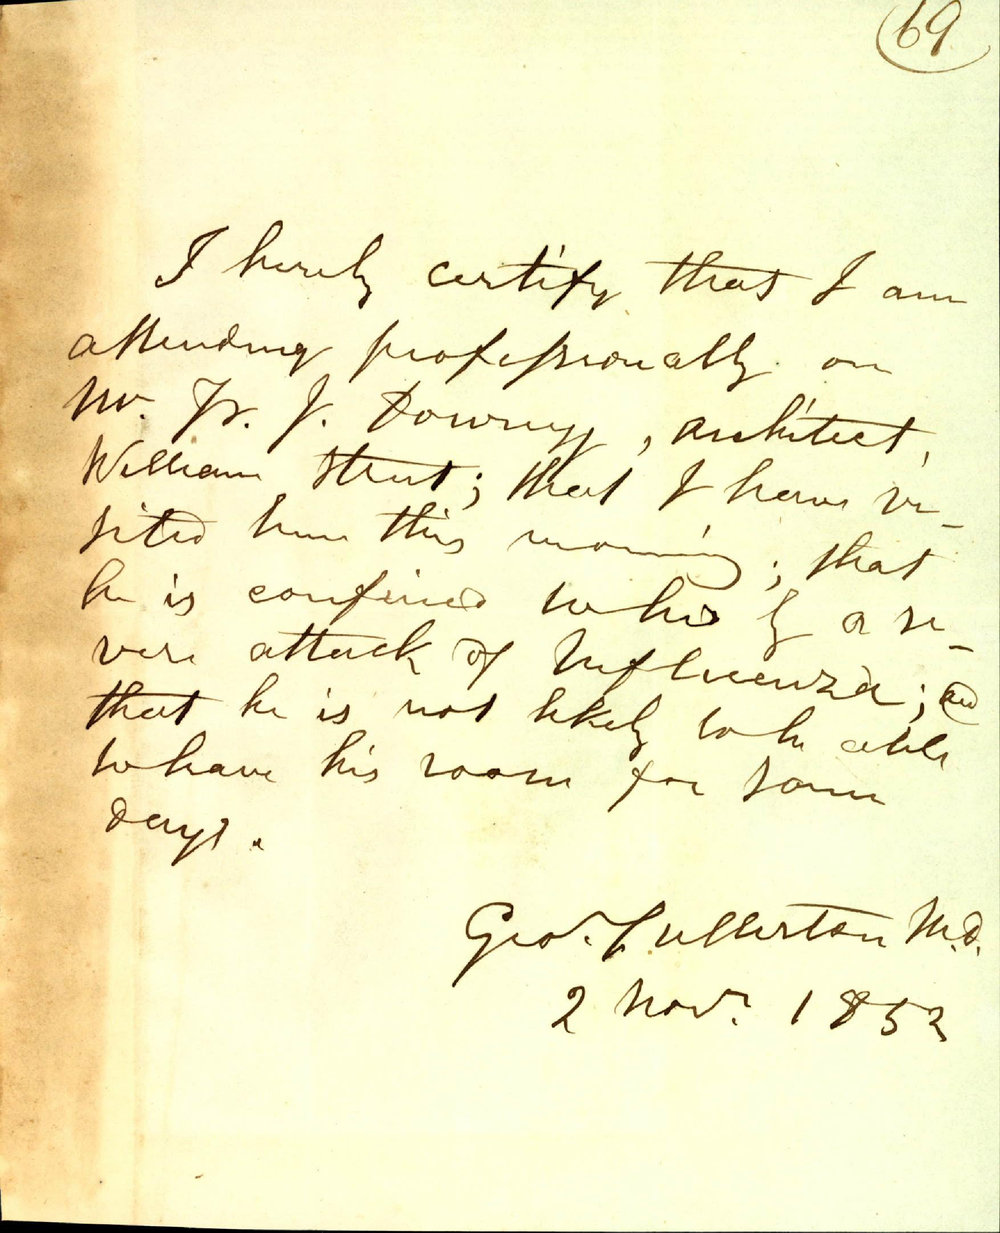 69
I hereby certify that I am
attending professionally on
Mr. Fr. J. Downey, architect,
William Street; that I have vi-
sited him this morning; that
he is confined to bed by a se-
vere attack of Influenza; and
that he is not likely to be able
to leave his room for some
days.
Geo. Fullerton M.D.
2 Novr. 1852